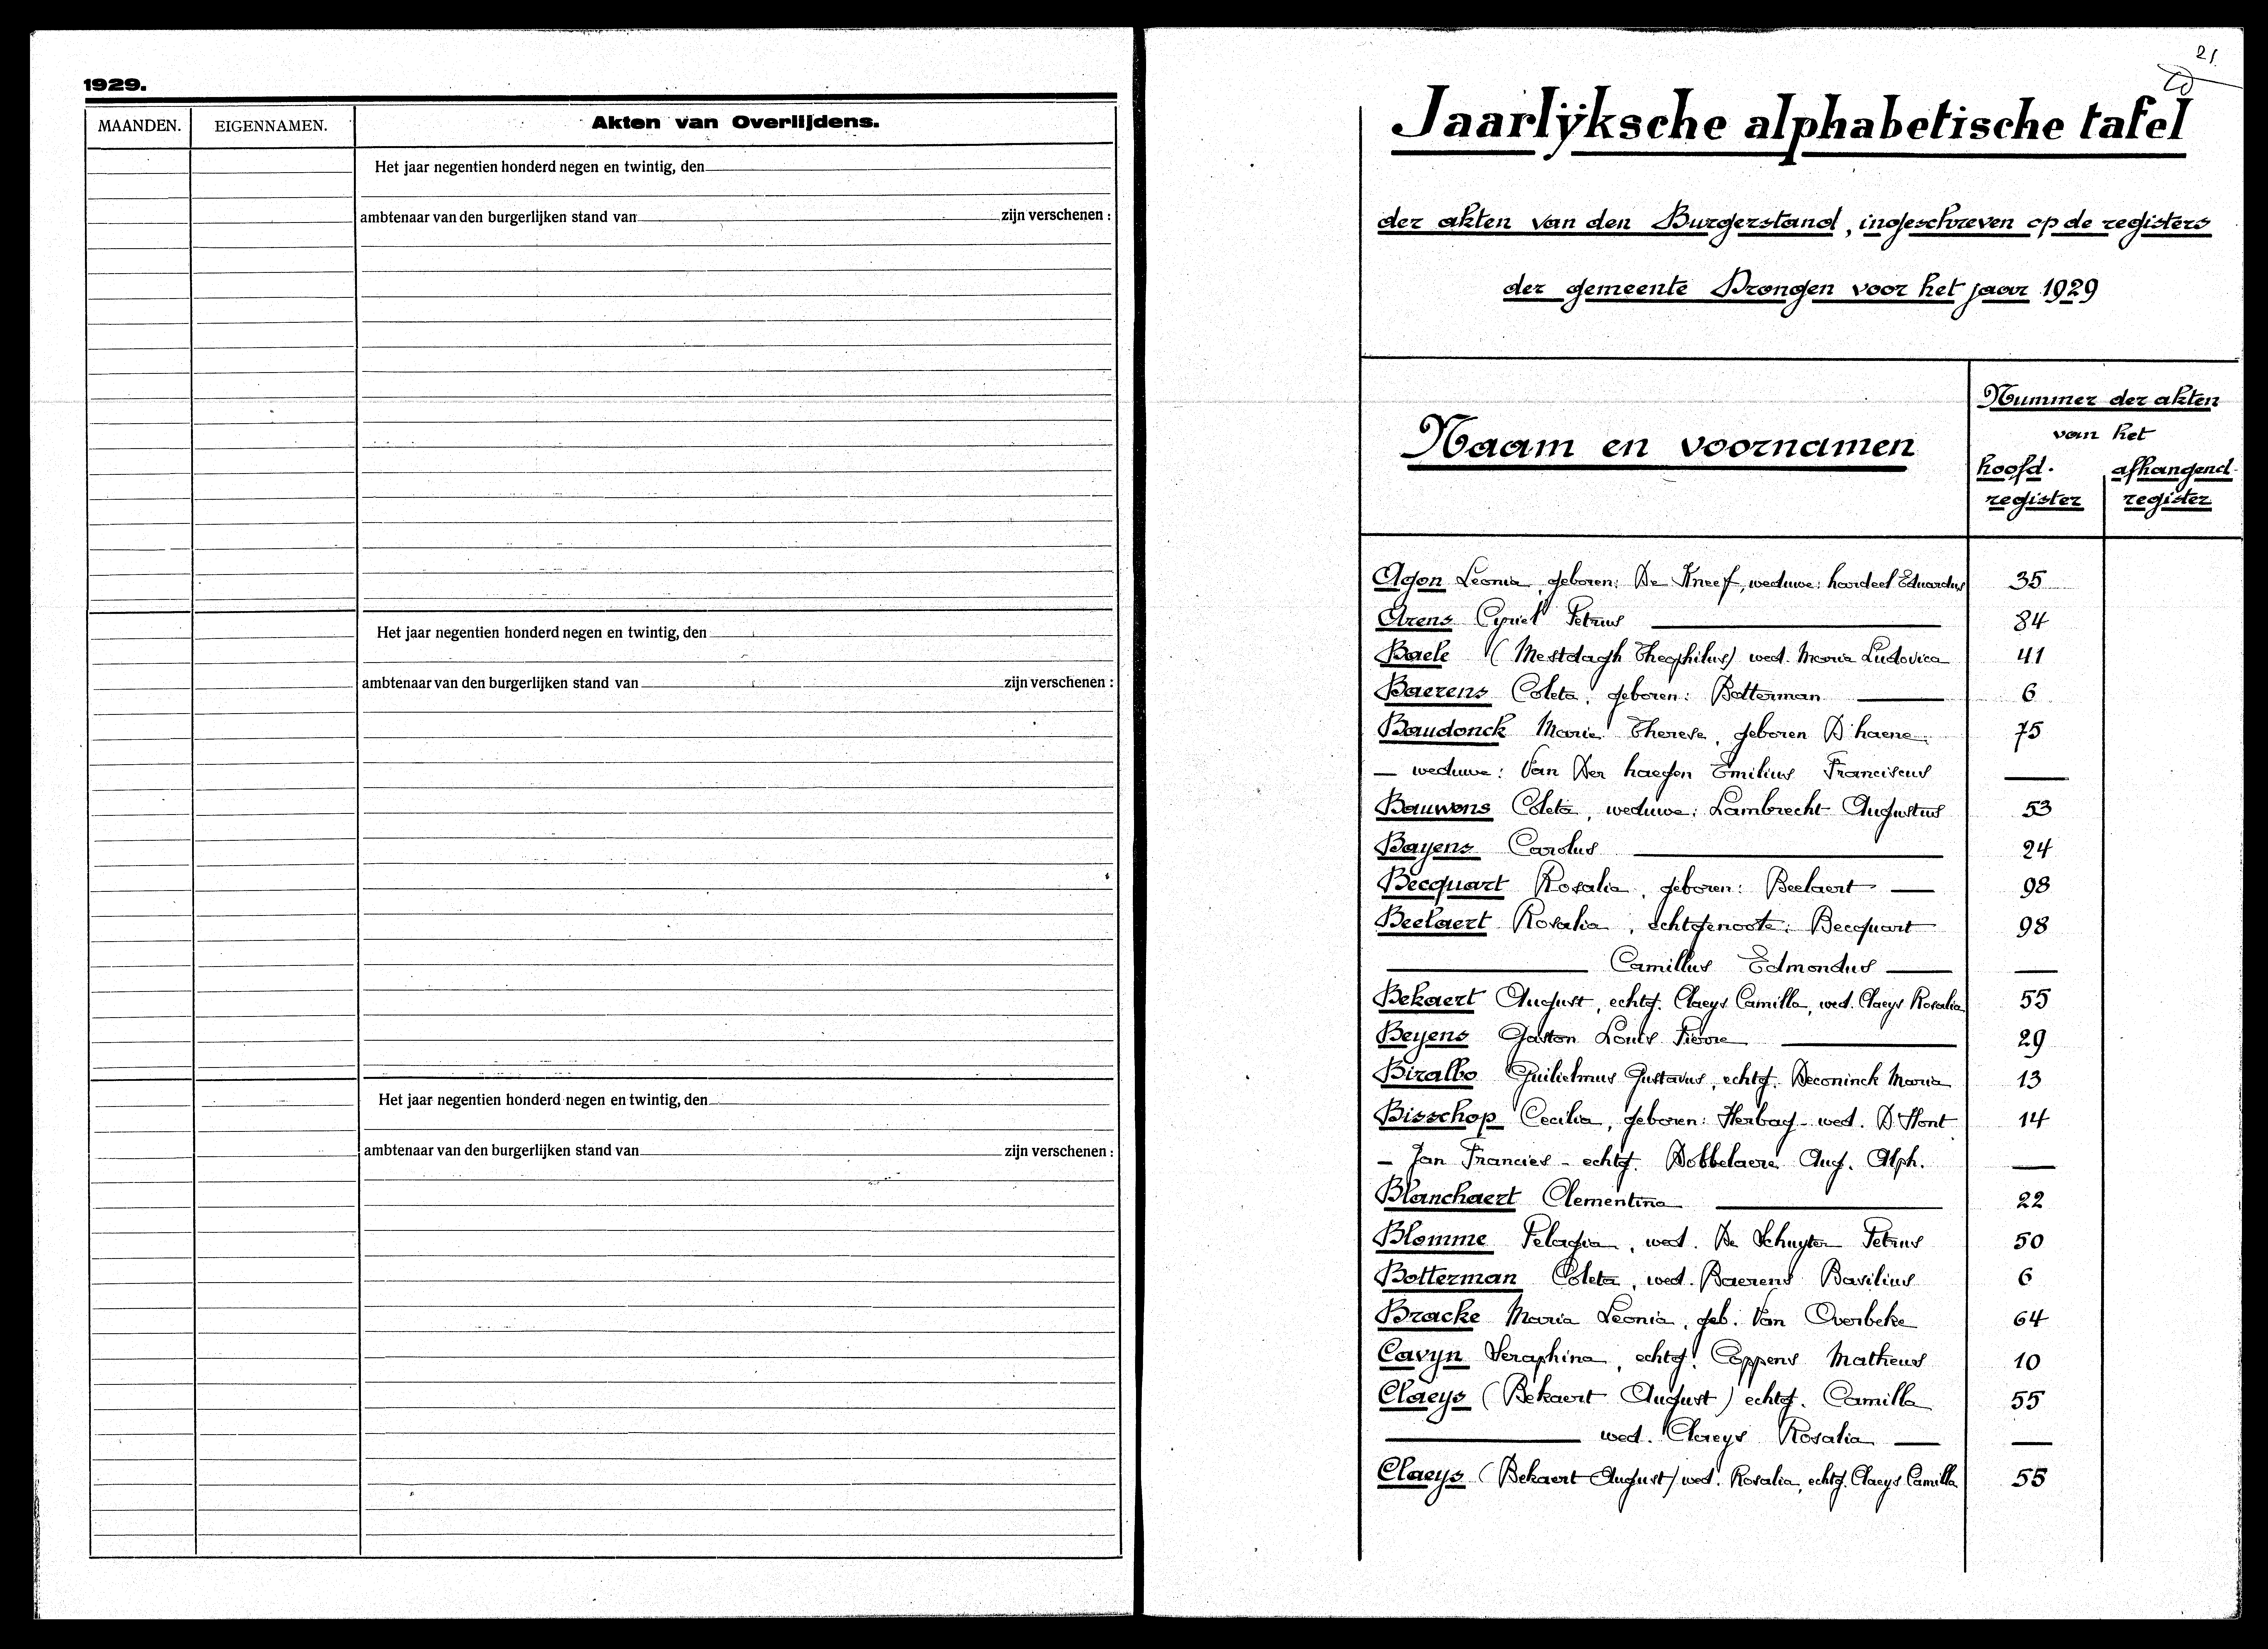 1929.
MAANDEN.
EIGENNAMEN.
Akten van Overlijdens.
Het jaar negentien honderd negen en twintig, den
ambtenaar van den burgerlijken stand van zijn verschenen :
Het jaar negentien honderd negen en twintig, den
ambtenaar van den burgerlijken stand van zijn verschenen :
Het jaar negentien honderd negen en twintig, den
ambtenaar van den burgerlijken stand van zijn verschenen :
21
Jaarlÿksche alphabetische tafel
der akten van den Burgerstand, ingeschreven op de registers
der gemeente Drongen voor het jaar 1929
Naam en voornamen
Nummer der akten
van het
hoofd. afhangend
register register
Agon Leonia, geboren: De Kneef, weduwe: hordeel Eduardus 35
Arens Cyriel Petrus 84
Baele (Mestdagh Theophilus) wed. Maria Ludovica 41
Baerens Coleta, geboren: Botterman 6
Baudonck Marie Therese, geboren D'haene 75
— weduwe: Van Der haegen Emilius Franciscus —
Bauwens Coleta, weduwe: Lambrecht Augustus 53
Bayens Carolus 24
Becquart Rosalia, geboren: Beelaert — 98
Beelaert Rosalia, echtgenoote: Becquart 98
— Camillus Edmondus — —
Bekaert August, echtg. Claeys Camilla, wed. Claeys Rosalia 55
Beyens Gaston Louis Pierre 29
Biralbo Guilielmus Gustavus, echtg. Deconinck Maria 13
Bisschop Cecilia, geboren: Herbag - wed. D'Hont 14
- Jan Francies - echtg. Dobbelaere Aug. Alph. —
Blanchaert Clementina 22
Blomme Pelagia, wed. De Schuyter Petrus 50
Botterman Coleta, wed. Baerens Basilius 6
Bracke Maria Leonia, geb. Van Overbeke 64
Cavyn Seraphina, echtg. Coppens Matheus 10
Claeys (Bekaert August) echtg. Camilla 55
— wed. Claeys Rosalia — —
Claeys (Bekaert August) wed. Rosalia, echtg. Claeys Camilla 55